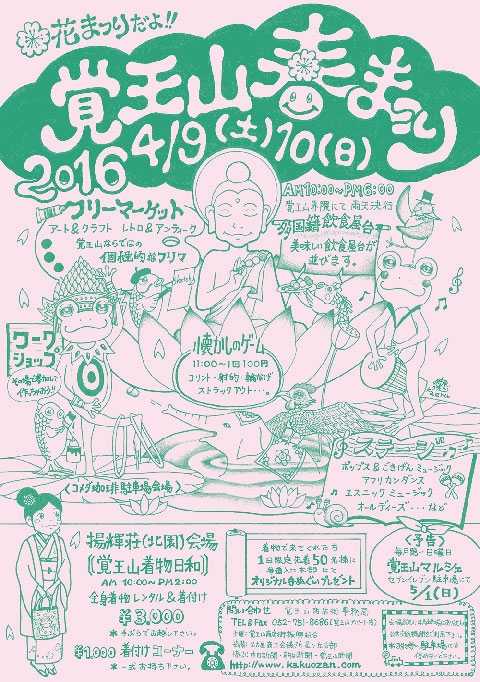 花まつりだよ!!
覚王山春まつり
2016 4/9(土)10(日)
AM10:00~PM6:00
覚王山界隈にて 雨天決行
フリーマーケット
アート&クラフト レトロ&アンティーク
覚王山ならではの
個性的なフリマ
多国籍飲食屋台
美味しい飲食屋台が
並びます。
ワーク
ショップ
その場で参加して
作っちゃおう!!
懐かしのゲーム
11:00~1回100円
コリント・射的・輪なげ
ストラックアウト・・・。
ステージ
ポップス&ごきげんミュージック
アフリカンダンス
エスニックミュージック
オールディーズ・・・など
(コメダ珈琲駐車場会場)
揚輝荘(北園)会場
[(覚王山着物日和)]
AM 10:00~PM2:00
全身着物レンタル&着付け
¥3,000
※手ぶらでお越し下さい。
¥1,000 着付けコーナー
※一式お持ち下さい。
着物で来てくれた方
1日限定先着50名様に
オリジナル手ぬぐいプレゼント
(予告)
毎月第一日曜日
覚王山マルシェ
セブンイレブン駐車場にて
5/1(日)
問い合わせ 覚王山商店街事務局
TEL&Fax (052-751-8686)
http://www.kakuozan.com/